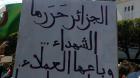 الجزائر حررها
الشهداء...
وباعها العملاء